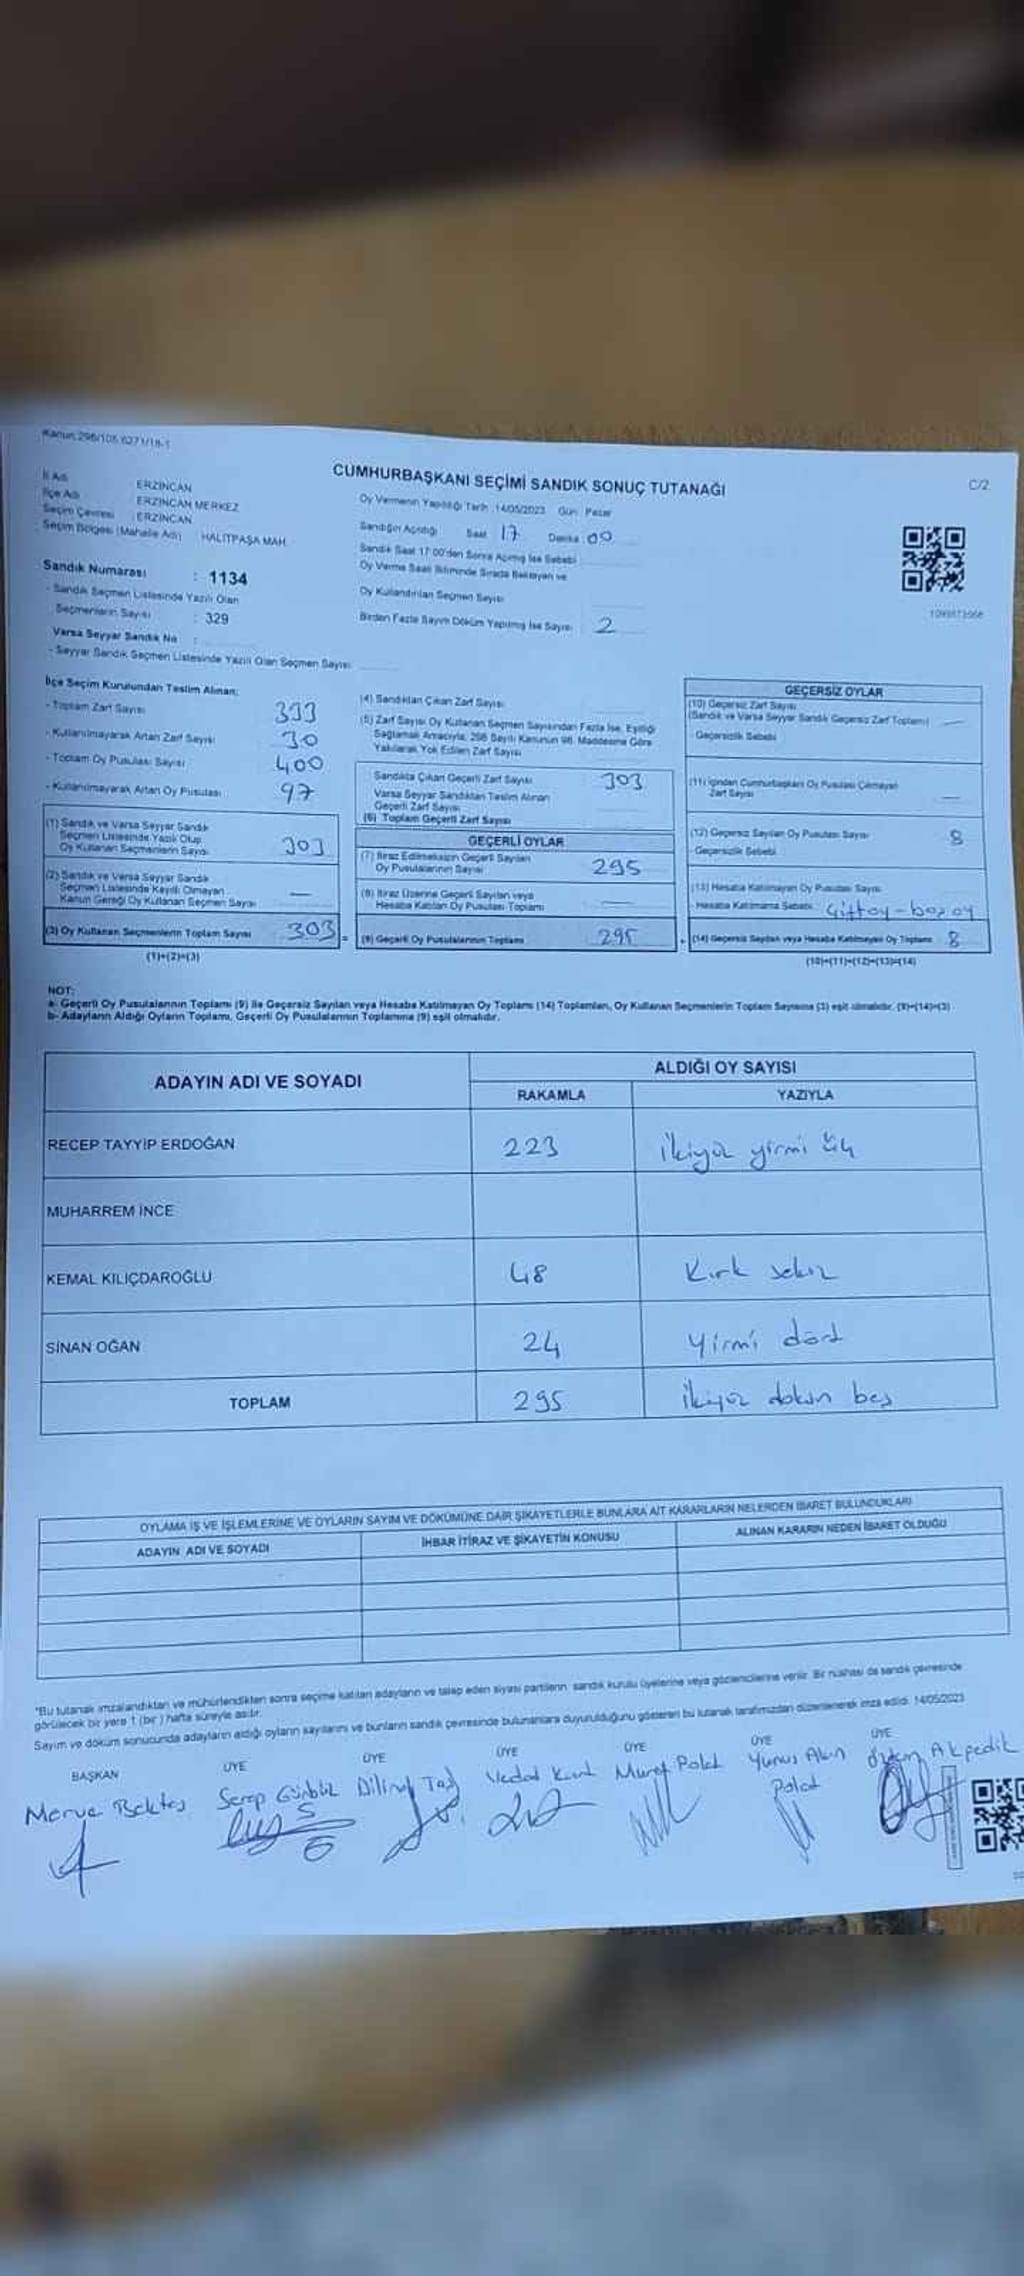 Kanun:298/105 6271/18-1
CUMHURBAŞKANI SEÇİMİ SANDIK SONUÇ TUTANAĞI
C/2
İl Adı ERZİNCAN
İlçe Adı ERZİNCAN MERKEZ
Seçim Çevresi : ERZİNCAN
Seçim Bölgesi (Mahalle Adı) HALİTPAŞA MAH.
Sandık Numarası : 1134
- Sandık Seçmen Listesinde Yazılı Olan
Seçmenlerin Sayısı : 329
Varsa Seyyar Sandık No :
- Seyyar Sandık Seçmen Listesinde Yazılı Olan Seçmen Sayısı
Oy Vermenin Yapıldığı Tarih: 14/05/2023 Gün: Pazar
Sandığın Açıldığı Saat 17 Dakika 00
Sandık Saat 17:00'den Sonra Açılmış İse Sebebi
Oy Verme Saati Bitiminde Sırada Bekleyen ve
Oy Kullandırılan Seçmen Sayısı
Birden Fazla Sayım Döküm Yapılmış İse Sayısı 2
İlçe Seçim Kurulundan Teslim Alınan:
- Toplam Zarf Sayısı 333
- Kullanılmayarak Artan Zarf Sayısı 30
- Toplam Oy Pusulası Sayısı 400
- Kullanılmayarak Artan Oy Pusulası 97
(1) Sandık ve Varsa Seyyar Sandık
Seçmen Listesinde Yazılı Olup
Oy Kullanan Seçmenlerin Sayısı 303
(2) Sandık ve Varsa Seyyar Sandık
Seçmen Listesinde Kayıtlı Olmayan
Kanun Gereği Oy Kullanan Seçmen Sayısı —
(3) Oy Kullanan Seçmenlerin Toplam Sayısı 303 =
(1)+(2)=(3)
(4) Sandıktan Çıkan Zarf Sayısı
(5) Zarf Sayısı Oy Kullanan Seçmen Sayısından Fazla İse, Eşitliği
Sağlamak Amacıyla, 298 Sayılı Kanunun 98. Maddesine Göre
Yakılarak Yok Edilen Zarf Sayısı
Sandıkta Çıkan Geçerli Zarf Sayısı 303
Varsa Seyyar Sandıktan Teslim Alınan
Geçerli Zarf Sayısı
(6) Toplam Geçerli Zarf Sayısı
GEÇERLİ OYLAR
(7) İtiraz Edilmeksizin Geçerli Sayılan
Oy Pusulalarının Sayısı 295
(8) İtiraz Üzerine Geçerli Sayılan veya
Hesaba Katılan Oy Pusulası Toplamı —
(9) Geçerli Oy Pusulalarının Toplamı 295
GEÇERSİZ OYLAR
(10) Geçersiz Zarf Sayısı
(Sandık ve Varsa Seyyar Sandık Geçersiz Zarf Toplamı) —
Geçersizlik Sebebi
(11) İçinden Cumhurbaşkanı Oy Pusulası Çıkmayan
Zarf Sayısı —
(12) Geçersiz Sayılan Oy Pusulası Sayısı 8
Geçersizlik Sebebi
(13) Hesaba Katılmayan Oy Pusulası Sayısı
Hesaba Katılmama Sebebi
(14) Geçersiz Sayılan veya Hesaba Katılmayan Oy Toplamı 8
(10)+(11)+(12)+(13)=(14)
NOT:
a- Geçerli Oy Pusulalarının Toplamı (9) ile Geçersiz Sayılan veya Hesaba Katılmayan Oy Toplamı (14) Toplamları, Oy Kullanan Seçmenlerin Toplam Sayısına (3) eşit olmalıdır. (9)+(14)=(3)
b- Adayların Aldığı Oyların Toplamı, Geçerli Oy Pusulalarının Toplamına (9) eşit olmalıdır.
ADAYIN ADI VE SOYADI
ALDIĞI OY SAYISI
RAKAMLA YAZIYLA
RECEP TAYYİP ERDOĞAN 223 ikiyüz yirmi üç
MUHARREM İNCE
KEMAL KILIÇDAROĞLU 48 Kırk sekiz
SİNAN OĞAN 24 yirmi dört
TOPLAM 295 ikiyüz doksan beş
OYLAMA İŞ VE İŞLEMLERİNE VE OYLARIN SAYIM VE DÖKÜMÜNE DAİR ŞİKAYETLERLE BUNLARA AİT KARARLARIN NELERDEN İBARET BULUNDUKLARI
ADAYIN ADI VE SOYADI
İHBAR İTİRAZ VE ŞİKAYETİN KONUSU
ALINAN KARARIN NEDEN İBARET OLDUĞU
"Bu tutanak imzalandıktan ve mühürlendikten sonra seçime katılan adayların ve talep eden siyasi partilerin sandık kurulu üyelerine veya gözlemcilerine verilir. Bir nüshası da sandık çevresinde
görülecek bir yere 1 (bir) hafta süreyle asılır.
Sayım ve döküm sonucunda adayların aldığı oyların sayılarını ve bunların sandık çevresinde bulunanlara duyurulduğunu gösteren bu tutanak tarafımızdan düzenlenerek imza edildi. 14/05/2023
BAŞKAN ÜYE ÜYE ÜYE ÜYE ÜYE ÜYE
Merve Bektaş Serap Gürbüz Vedat Kurt Murat Polat Yunus Akın Akpedik
Polat